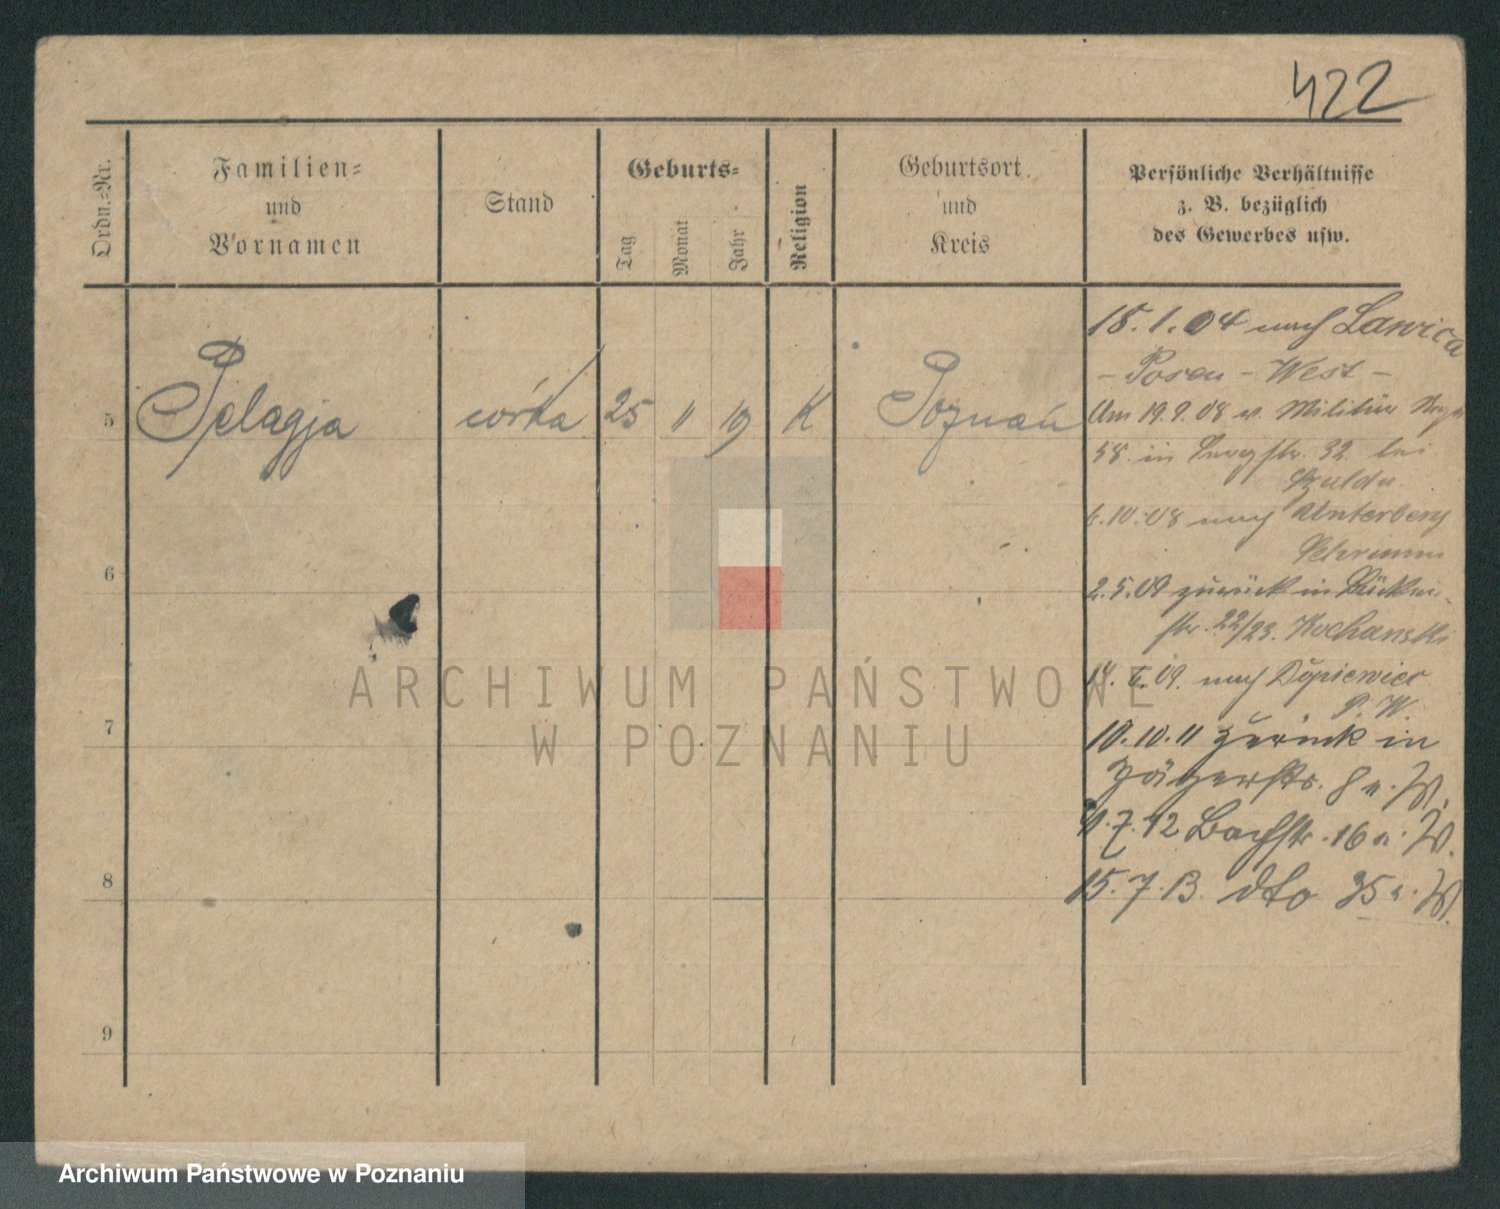 422
Ordn.-Nr.
Familien-
und
Vornamen
Stand
Geburts-
Tag
Monat
Jahr
Religion
Geburtsort
und
Kreis
Persönliche Verhältnisse
z. B. bezüglich
des Gewerbes usw.
5 Pelagja córka 25 11 19 K Poznań
6
7
8
9
18.1.04 nach Lawica
- Posen - West -
Am 19.9.08 v. Militär
58 in 32 bei
6.10.08 nach Unterberg
Schrimm
2.5.09 zurück in
str. 22/23. Kochanski
6.09. nach Dopiewiec
P. W.
10.10.11 zurück in
Jägerstr. 8 b. W.
1.7.12 Bachstr. 16 b. W.
15.7.13. dto 35 b. W.
ARCHIWUM PAŃSTWOWE
W POZNANIU
Archiwum Państwowe w Poznaniu